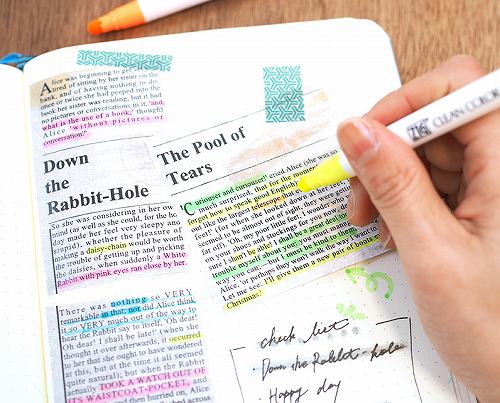 Alice was beginning to get
tired of sitting by her sister on the
bank, and of having nothing to do:
once or twice she had peeped into the
book her sister was reading, but it had
no pictures or conversations in it, 'and
what is the use of a book,' thought
Alice 'without pictures or
conversation?'
Down
the
Rabbit-Hole
So she was considering in her ow
mind (as well as she could, for the ho
day made her feel very sleepy and
stupid), whether the pleasure of
making a daisy-chain would be worth
the trouble of getting up and picking
the daisies, when suddenly a White
Rabbit with pink eyes ran close by her.
There was nothing so VERY
remarkable in that; nor did Alice think
it so VERY much out of the way to
hear the Rabbit say to itself, 'Oh dear!
Oh dear! I shall be late!' (when she
thought it over afterwards, it occurred
to her that she ought to have wondered
at this, but at the time it all seemed
quite natural); but when the Rabbit
actually TOOK A WATCH OUT OF
ITS WAISTCOAT-POCKET, and
and then hurried on, Alice
The Pool of
Tears
'Curiouser and curiouser!' cried Alice (she was so
much surprised, that for the moment
forgot how to speak good English);
out like the largest telescope that
feet!' (for when she looked down at her
seemed to be almost out of sight, they were
far off). 'Oh, my poor little feet, I wonder
on your shoes and stockings for you now
sure I shan't be able! I shall be a great deal
trouble myself about you: you must manage
way you can;—but I must be kind to them,'
Alice, 'or perhaps they won't walk the way I want to
Let me see: I'll give them a new pair of boots
Christmas.'
check list
· Down the Rabbit-hole
· Happy day
ZIG CLEAN COLOR